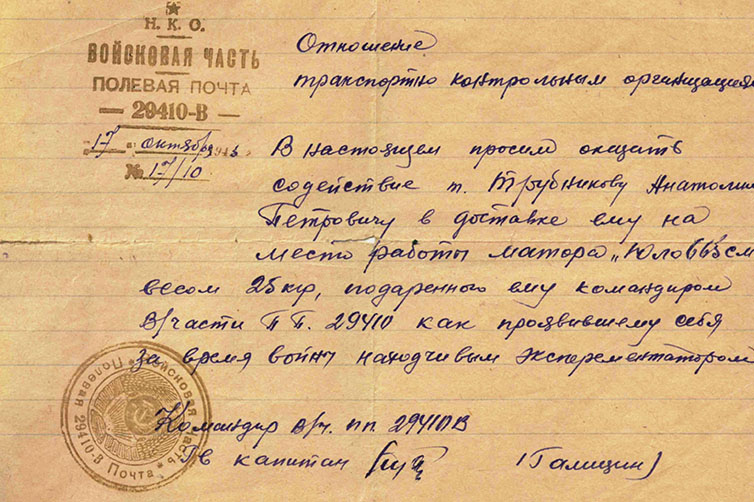 Н.К.О.
ВОЙСКОВАЯ ЧАСТЬ
ПОЛЕВАЯ ПОЧТА
— 29410-В —
"17" октября 194
№ 17/10
Отношение
транспортно контрольным организация
В настоящем просим оказать
содействие т. Трубникову Анатолию
Петровичу в доставке ему на
место работы матора
весом 25 кгр, подаренного ему командиром
В/части П П. 29410 как проявившему себя
за время войны находчивым эксперементатором
Командир в/ч. пп 29410 В
Гв капитан (Галицин)
Войсковая часть
Полевая Почта 29410-В